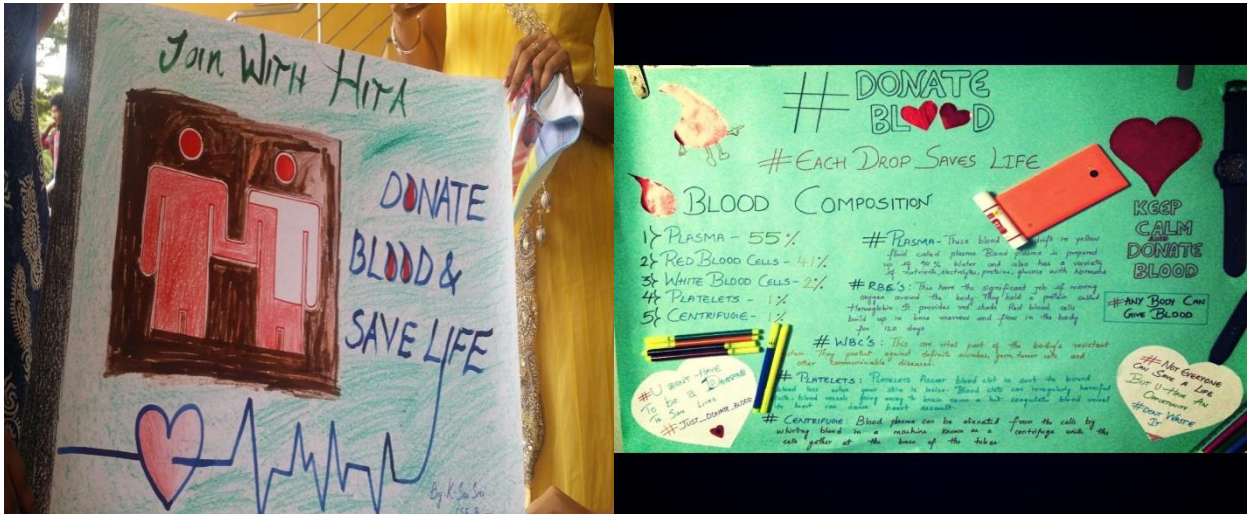 Join With HITA
DONATE
BLOOD &
SAVE LIFE
By: K.
# DONATE
BLOOD
# EACH DROP SAVES LIFE
BLOOD COMPOSITION
1) PLASMA - 55%
2) RED BLOOD CELLS - 41%
3) WHITE BLOOD CELLS - 2%
4) PLATELETS - 1%
5) CENTRIFUGE - 1%
# PLASMA - These blood drift in yellow
fluid called plasma Blood plasma is prepared
up of 90% Water and also has a variety
of nutrients, electrolytes, proteins, glucose with hormone
# RBC'S: This have the significant job of moving
oxygen around the body. They hold a protein called
Hemoglobin. It provides red shade Red blood cells
build up in bone marrow and flow in the body
for 120 days
# WBC'S: This are vital part of the body's resistant
They protect against definite microbes, from tumor cells and
other communicable diseases.
# PLATELETS: PLATELETS Assist blood clot in sort to
blood loss when your skin is Blood clots can irregularly harmful
blood vessels going away to brain cause a hit. coagulate blood vessel
heart can cause heart assault.
# CENTRIFUGE: Blood plasma can be alienated from the cells by
whirling blood in a machine known as a centrifuge with the
cells gether at the base of the tubes.
KEEP
CALM
AND
DONATE
BLOOD
# ANY BODY CAN
GIVE BLOOD
# U DON'T HAVE
TO BE A
TO SAVE LIVES
# JUST_DONATE_BLOOD
# NOT EVERYONE
CAN SAVE A LIFE
BUT U HAVE AN
OPPORTUNITY
# DONT WASTE
IT